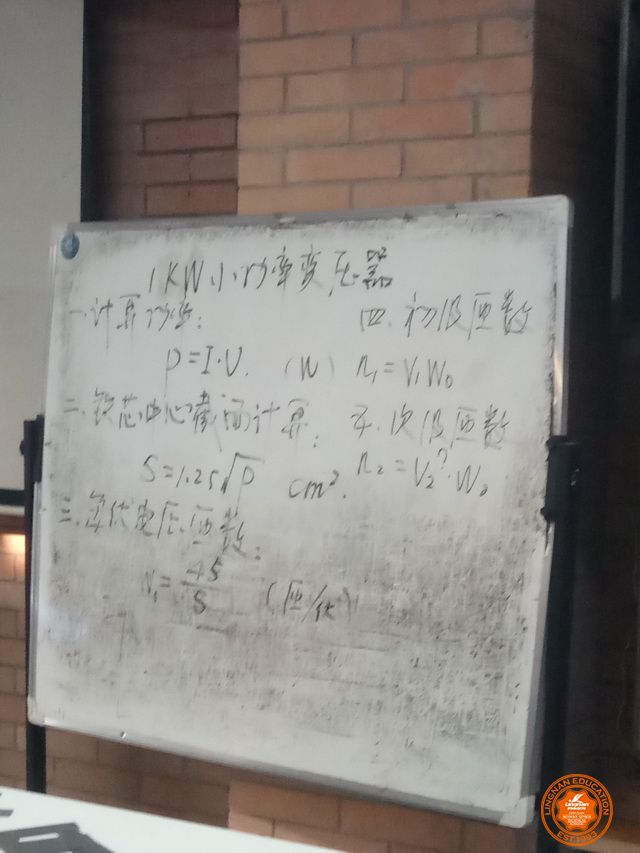 1KW小功率变压器
一.计算功率:
P=I·V. (W)
二.铁芯中心截面计算:
S=1.25√P cm².
三.每伏电压匝数:
=45/S (匝/伏)
四.初级匝数
n₁=V₁W₀
五.次级匝数
n₂=V₂?·W₀
LINGNAN EDUCATION
Lingnan
EST.1993